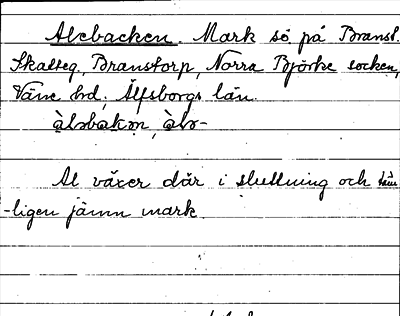 Alebacken. Mark sö på Branst.
Skatteg, Branstorp, Norra Björke socken,
Väne hd, Älfsborgs län.
àləbakən, àlə-
Al växer där i sluttning och täm
-ligen jämn mark.